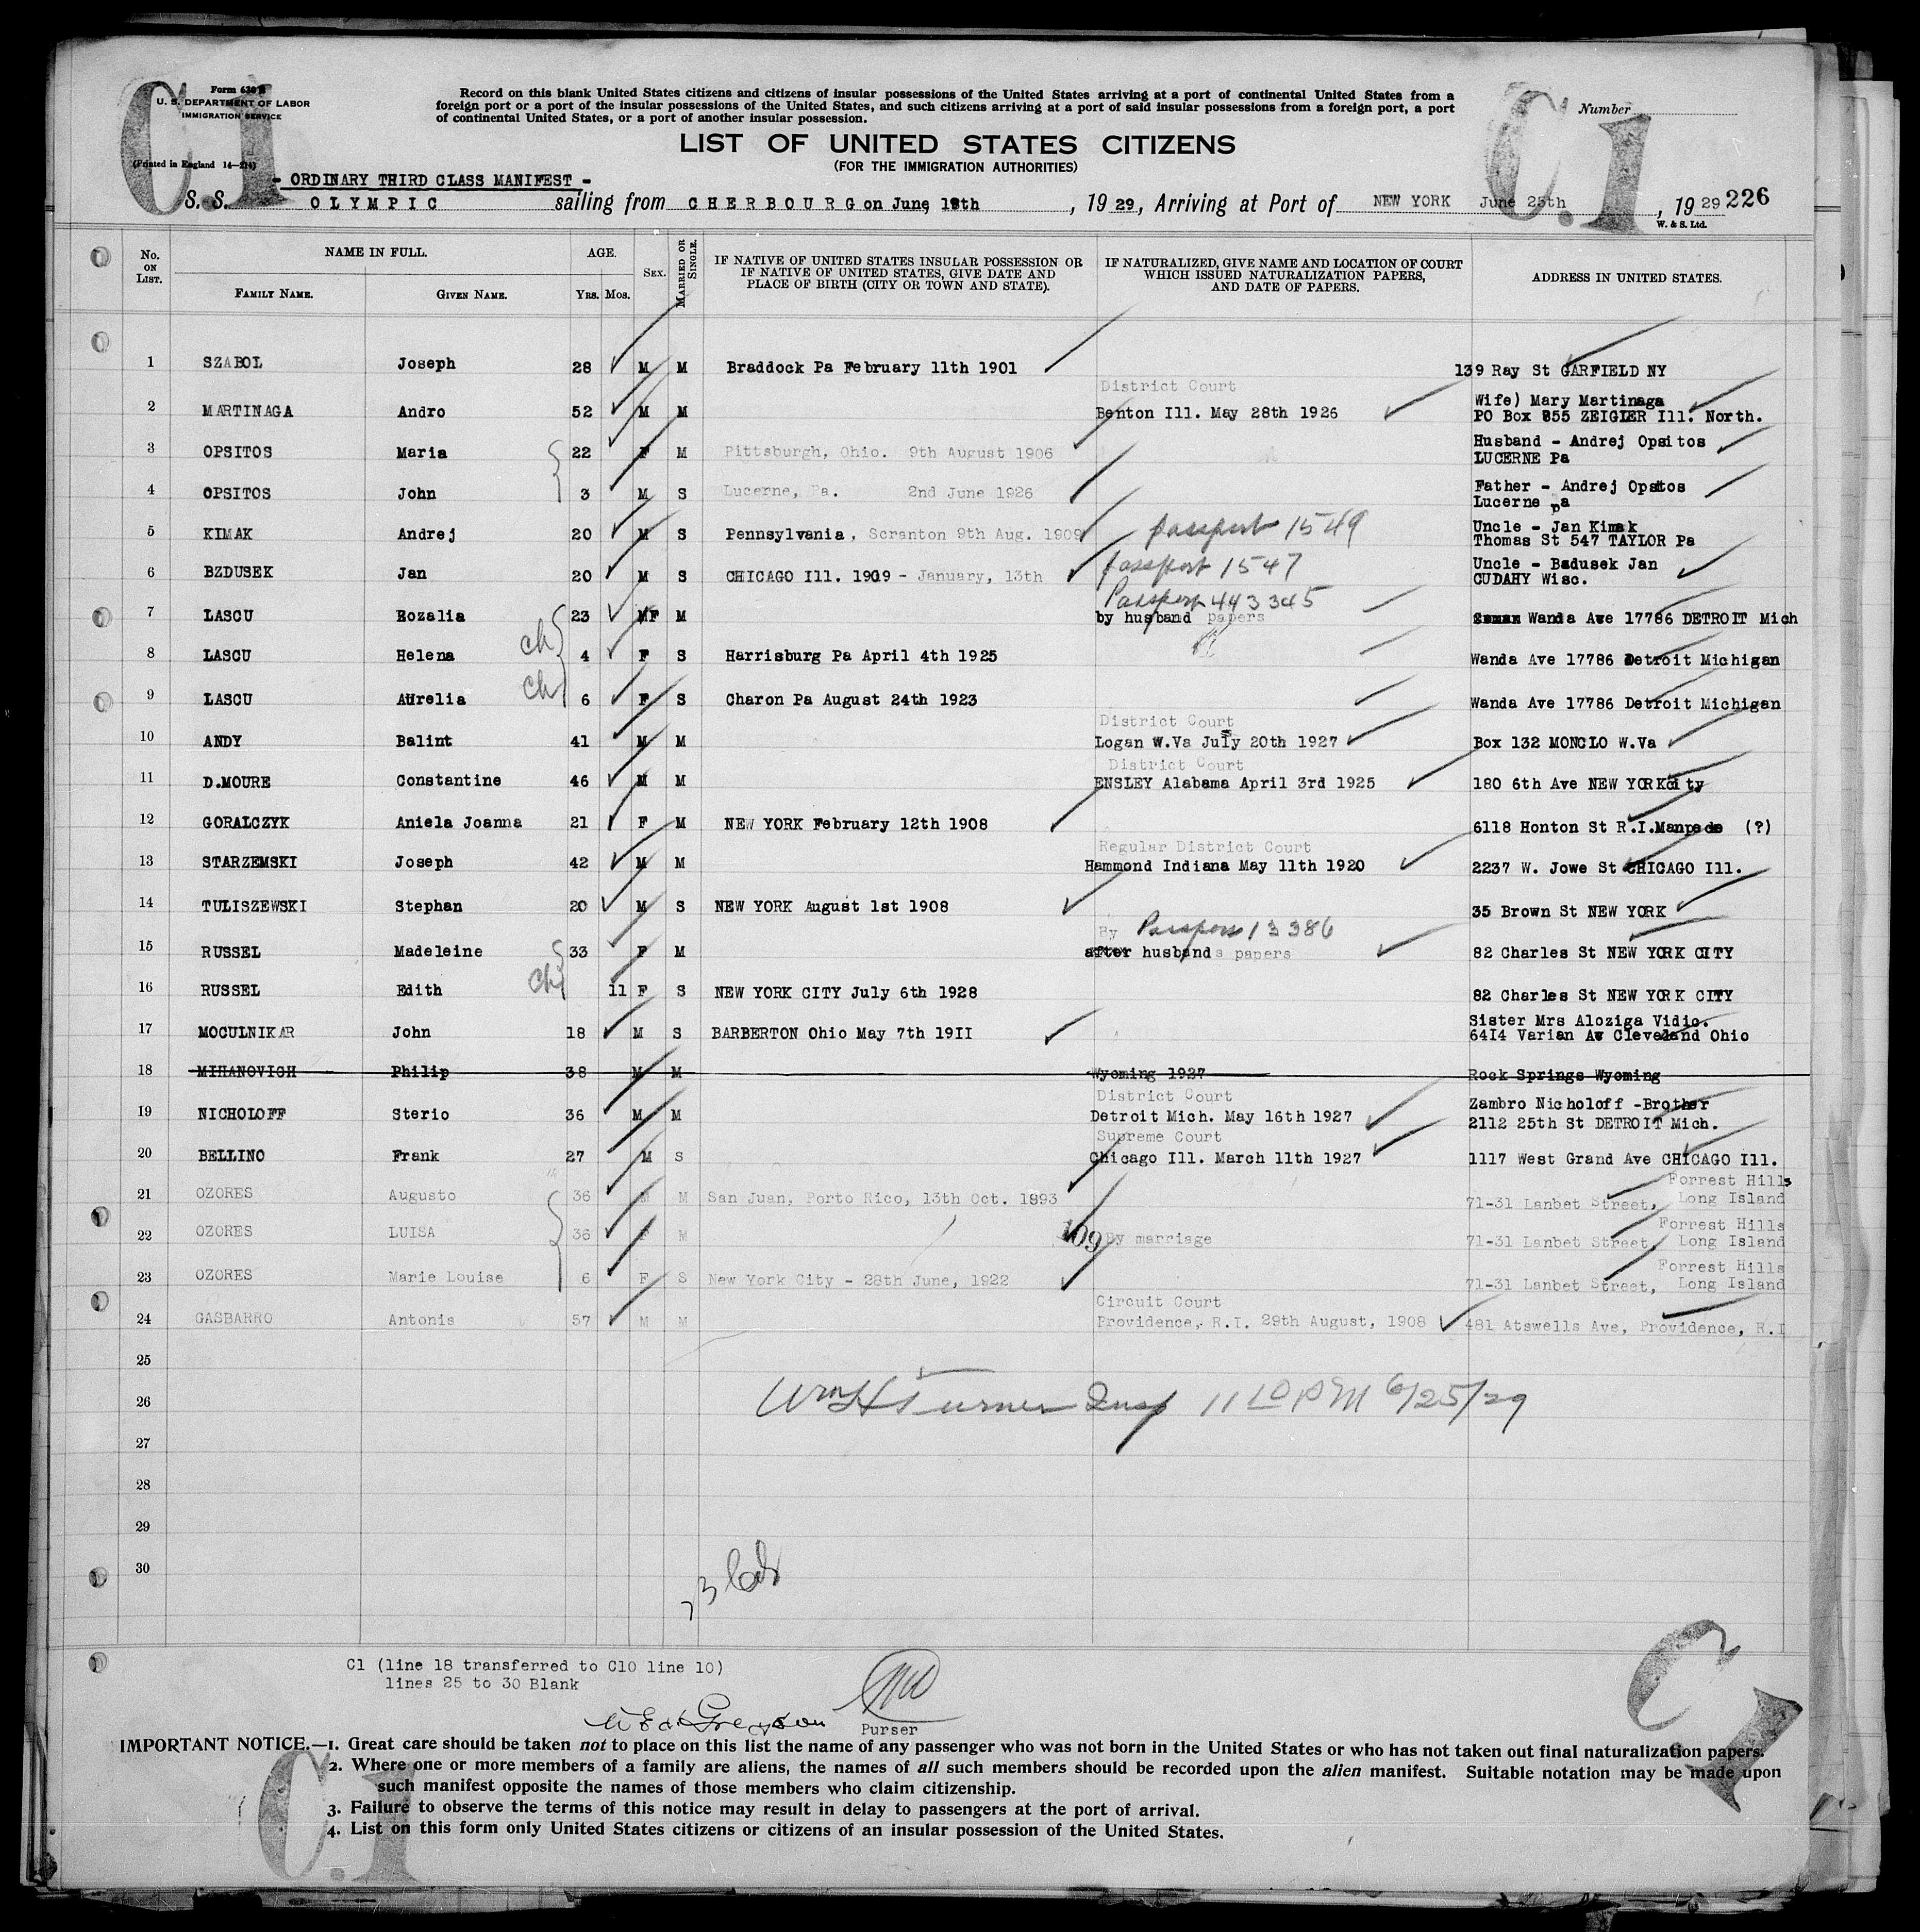 C.1
C.1
Form 630 B
U. S. DEPARTMENT OF LABOR
IMMIGRATION SERVICE
(Printed in England 14—214)
Record on this blank United States citizens and citizens of insular possessions of the United States arriving at a port of continental United States from a
foreign port or a port of the insular possessions of the United States, and such citizens arriving at a port of said insular possessions from a foreign port, a port
of continental United States, or a port of another insular possession.
Number
LIST OF UNITED STATES CITIZENS
(FOR THE IMMIGRATION AUTHORITIES)
- ORDINARY THIRD CLASS MANIFEST -
S. S. OLYMPIC sailing from CHERBOURG on June 19th, 1929, Arriving at Port of NEW YORK June 25th, 1929 226
W. & S. Ltd.
No. ON LIST. NAME IN FULL. AGE. SEX. MARRIED OR SINGLE. IF NATIVE OF UNITED STATES INSULAR POSSESSION OR IF NATIVE OF UNITED STATES, GIVE DATE AND PLACE OF BIRTH (CITY OR TOWN AND STATE). IF NATURALIZED, GIVE NAME AND LOCATION OF COURT WHICH ISSUED NATURALIZATION PAPERS, AND DATE OF PAPERS. ADDRESS IN UNITED STATES.
FAMILY NAME. GIVEN NAME. YRS. MOS.
1 SZABOL Joseph 28 M M Braddock Pa February 11th 1901 139 Ray St GARFIELD NY
District Court
Wife) Mary Martinaga
2 MARTINAGA Andro 52 M M Benton Ill. May 28th 1926 PO Box 855 ZEIGLER Ill. North.
Husband - Andrej Opsitos
3 OPSITOS Maria 22 F M Pittsburgh, Ohio. 9th August 1906 LUCERNE Pa
Father - Andrej Opsitos
4 OPSITOS John 3 M S Lucerne, Pa. 2nd June 1926 Lucerne Pa
Uncle - Jan Kimak
5 KIMAK Andrej 20 M S Pennsylvania, Scranton 9th Aug. 1909 passport 1549 Thomas St 547 TAYLOR Pa
Uncle - Bzdusek Jan
6 BZDUSEK Jan 20 M S CHICAGO Ill. 1909 - January, 13th passport 1547 CUDAHY Wisc.
Passport 443345
7 LASCU Rozalia 23 F M by husband papers Wanda Ave 17786 DETROIT Mich
8 LASCU Helena ch 4 F S Harrisburg Pa April 4th 1925 Wanda Ave 17786 Detroit Michigan
9 LASCU Aurelia ch 6 F S Charon Pa August 24th 1923 Wanda Ave 17786 Detroit Michigan
District Court
10 ANDY Balint 41 M M Logan W.Va July 20th 1927 Box 132 MONCLO W.Va
District Court
11 D.MOURE Constantine 46 M M ENSLEY Alabama April 3rd 1925 180 6th Ave NEW YORK City
12 GORALCZYK Aniela Joanna 21 F M NEW YORK February 12th 1908 6118 Honton St R.I. (?)
Regular District Court
13 STARZEMSKI Joseph 42 M M Hammond Indiana May 11th 1920 2237 W. Jowe St CHICAGO Ill.
14 TULISZEWSKI Stephan 20 M S NEW YORK August 1st 1908 35 Brown St NEW YORK
By Passport 13386
15 RUSSEL Madeleine 33 F M after husbands papers 82 Charles St NEW YORK CITY
16 RUSSEL Edith ch 11 F S NEW YORK CITY July 6th 1928 82 Charles St NEW YORK CITY
Sister Mrs Aloziga Vidic.
17 MOCULNIKAR John 18 M S BARBERTON Ohio May 7th 19II 64I4 Varian Av Cleveland Ohio
18 MIHANOVICH Philip 38 M M Wyoming 1927 Rock Springs Wyoming
District Court
Zambro Nicholoff -Brother
19 NICHOLOFF Sterio 36 M M Detroit Mich. May 16th 1927 2112 25th St DETROIT Mich.
Supreme Court
20 BELLINO Frank 27 M S Chicago Ill. March 11th 1927 1117 West Grand Ave CHICAGO Ill.
Forrest Hills
21 OZORES Augusto 36 M M San Juan, Porto Rico, 13th Oct. 1893 71-31 Lanbet Street, Long Island
Forrest Hills
22 OZORES LUISA 36 F M 109 By marriage 71-31 Lanbet Street, Long Island
Forrest Hills
23 OZORES Marie Louise 6 F S New York City - 28th June, 1922 71-31 Lanbet Street, Long Island
Circuit Court
24 GASBARRO Antonis 57 M M Providence, R.I. 29th August, 1908 481 Atswells Ave, Providence, R.I
25
26 Wm H Turner Insp 11 10 PM 6/25/29
27
28
29
30
C1 (line 18 transferred to C10 line 10)
lines 25 to 30 Blank
Purser
IMPORTANT NOTICE.—1. Great care should be taken not to place on this list the name of any passenger who was not born in the United States or who has not taken out final naturalization papers.
2. Where one or more members of a family are aliens, the names of all such members should be recorded upon the alien manifest. Suitable notation may be made upon
such manifest opposite the names of those members who claim citizenship.
3. Failure to observe the terms of this notice may result in delay to passengers at the port of arrival.
4. List on this form only United States citizens or citizens of an insular possession of the United States.
C.1
C.1